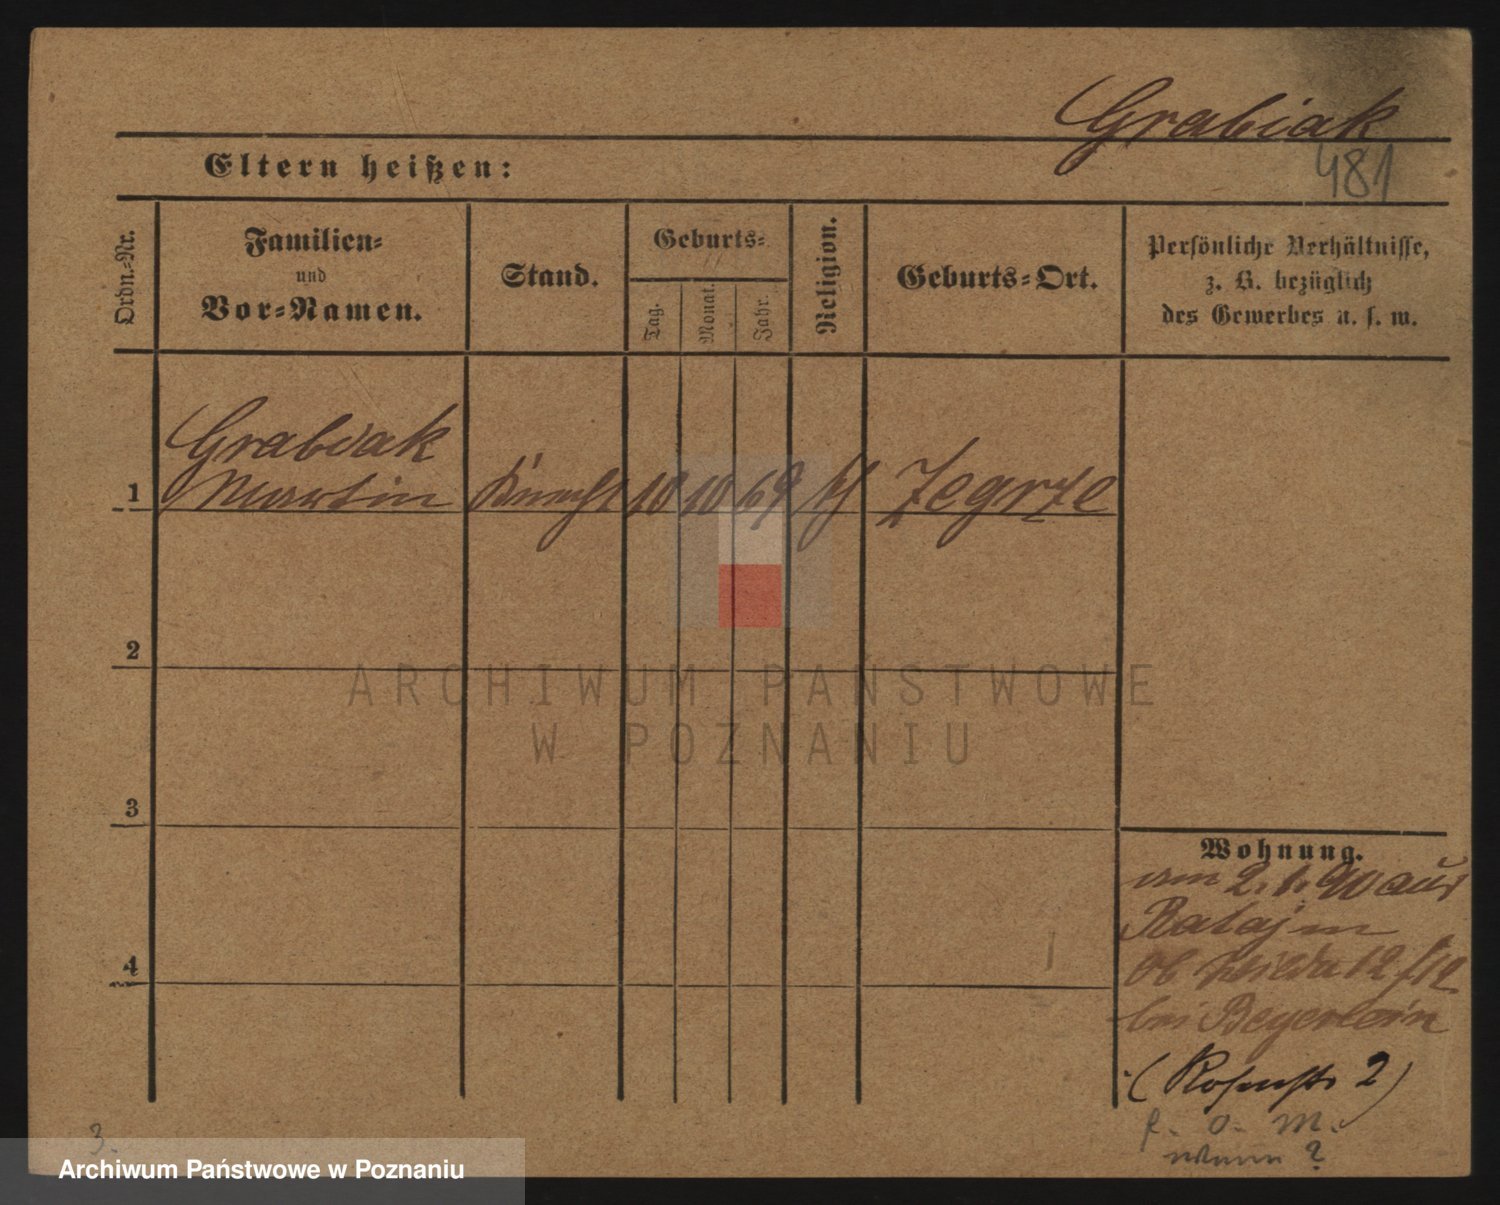 Grabiak
481
Eltern heißen:
Ordn.-Nr.
Familien-
und
Vor-Namen.
Stand.
Geburts-
Tag.
Monat.
Jahr.
Religion.
Geburts-Ort.
Persönliche Verhältnisse,
z. B. bezüglich
des Gewerbes u. s. w.
Grabiak
1 Martin Knecht 10 10 69 kf Zegrze
2
3
4
Wohnung.
am 2. 1. 90 aus
Rataj in
Ob Wilda 12 f 12
bei Beyerlein
(Rosenstr 2)
f. o. M.
wann ?
3.
ARCHIWUM PAŃSTWOWE
W POZNANIU
Archiwum Państwowe w Poznaniu